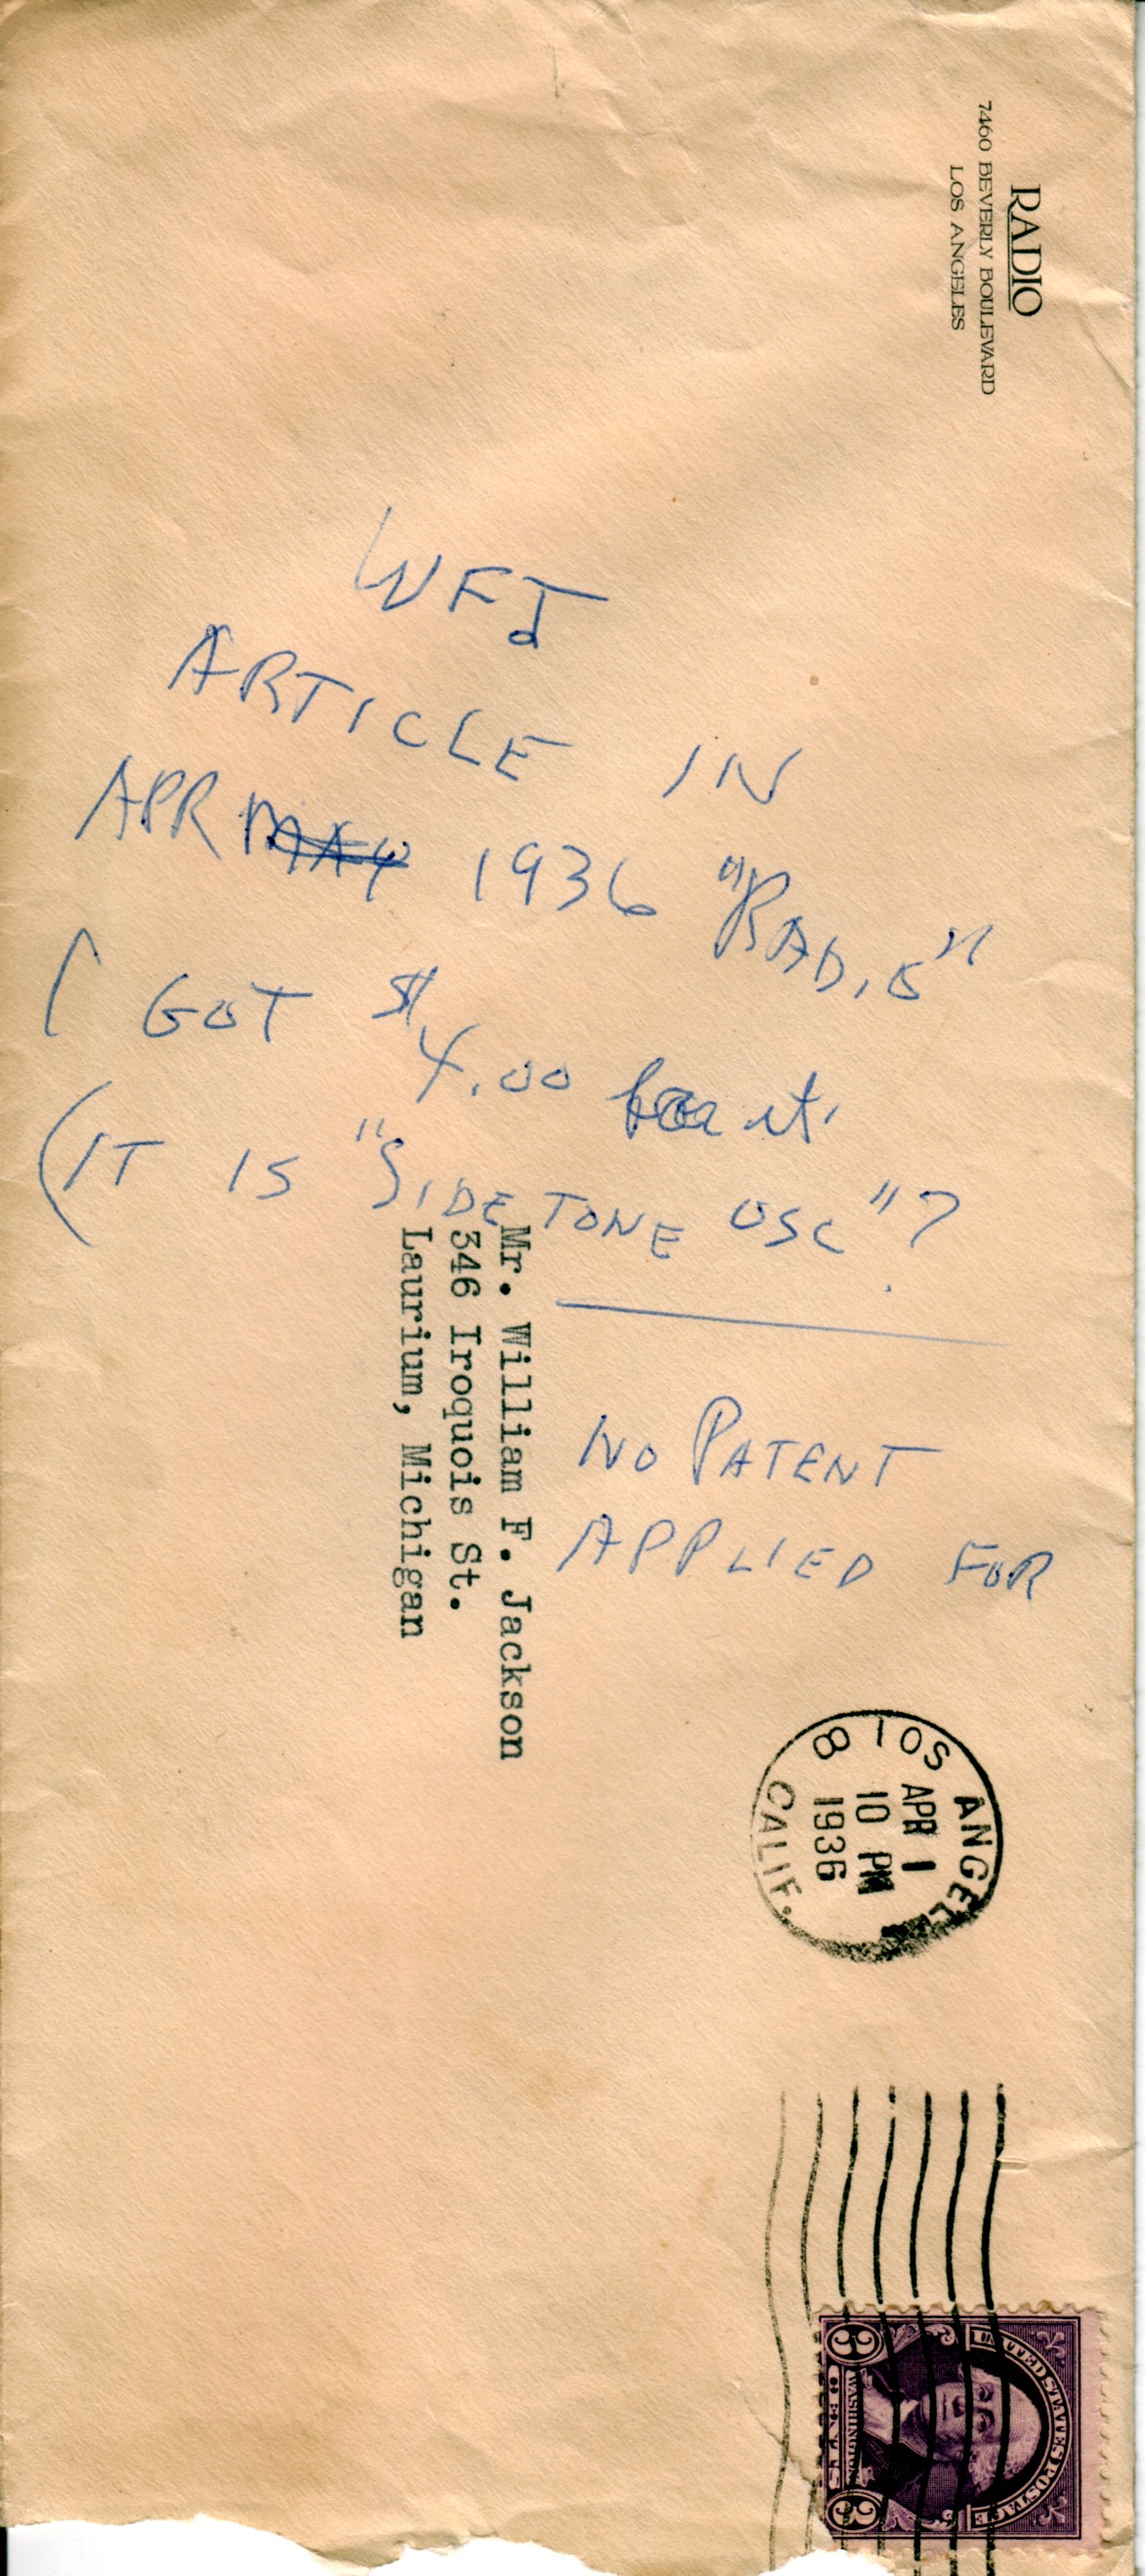 RADIO
7460 BEVERLY BOULEVARD
LOS ANGELES
WFJ
ARTICLE IN
APR MAY 1936 "RADIO"
I GOT $4.00 for it.
(IT IS "SIDE TONE OSC"?
NO PATENT
APPLIED FOR
Mr. William F. Jackson
346 Iroquois St.
Laurium, Michigan
LOS ANGEL
APR 1
10 PM
1936
8
CALIF.
UNITED STATES POSTAGE
WASHINGTON
3 CENTS 3